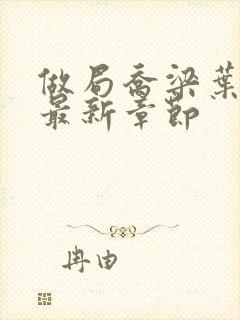 做局乔梁葉
最新章節
冉由